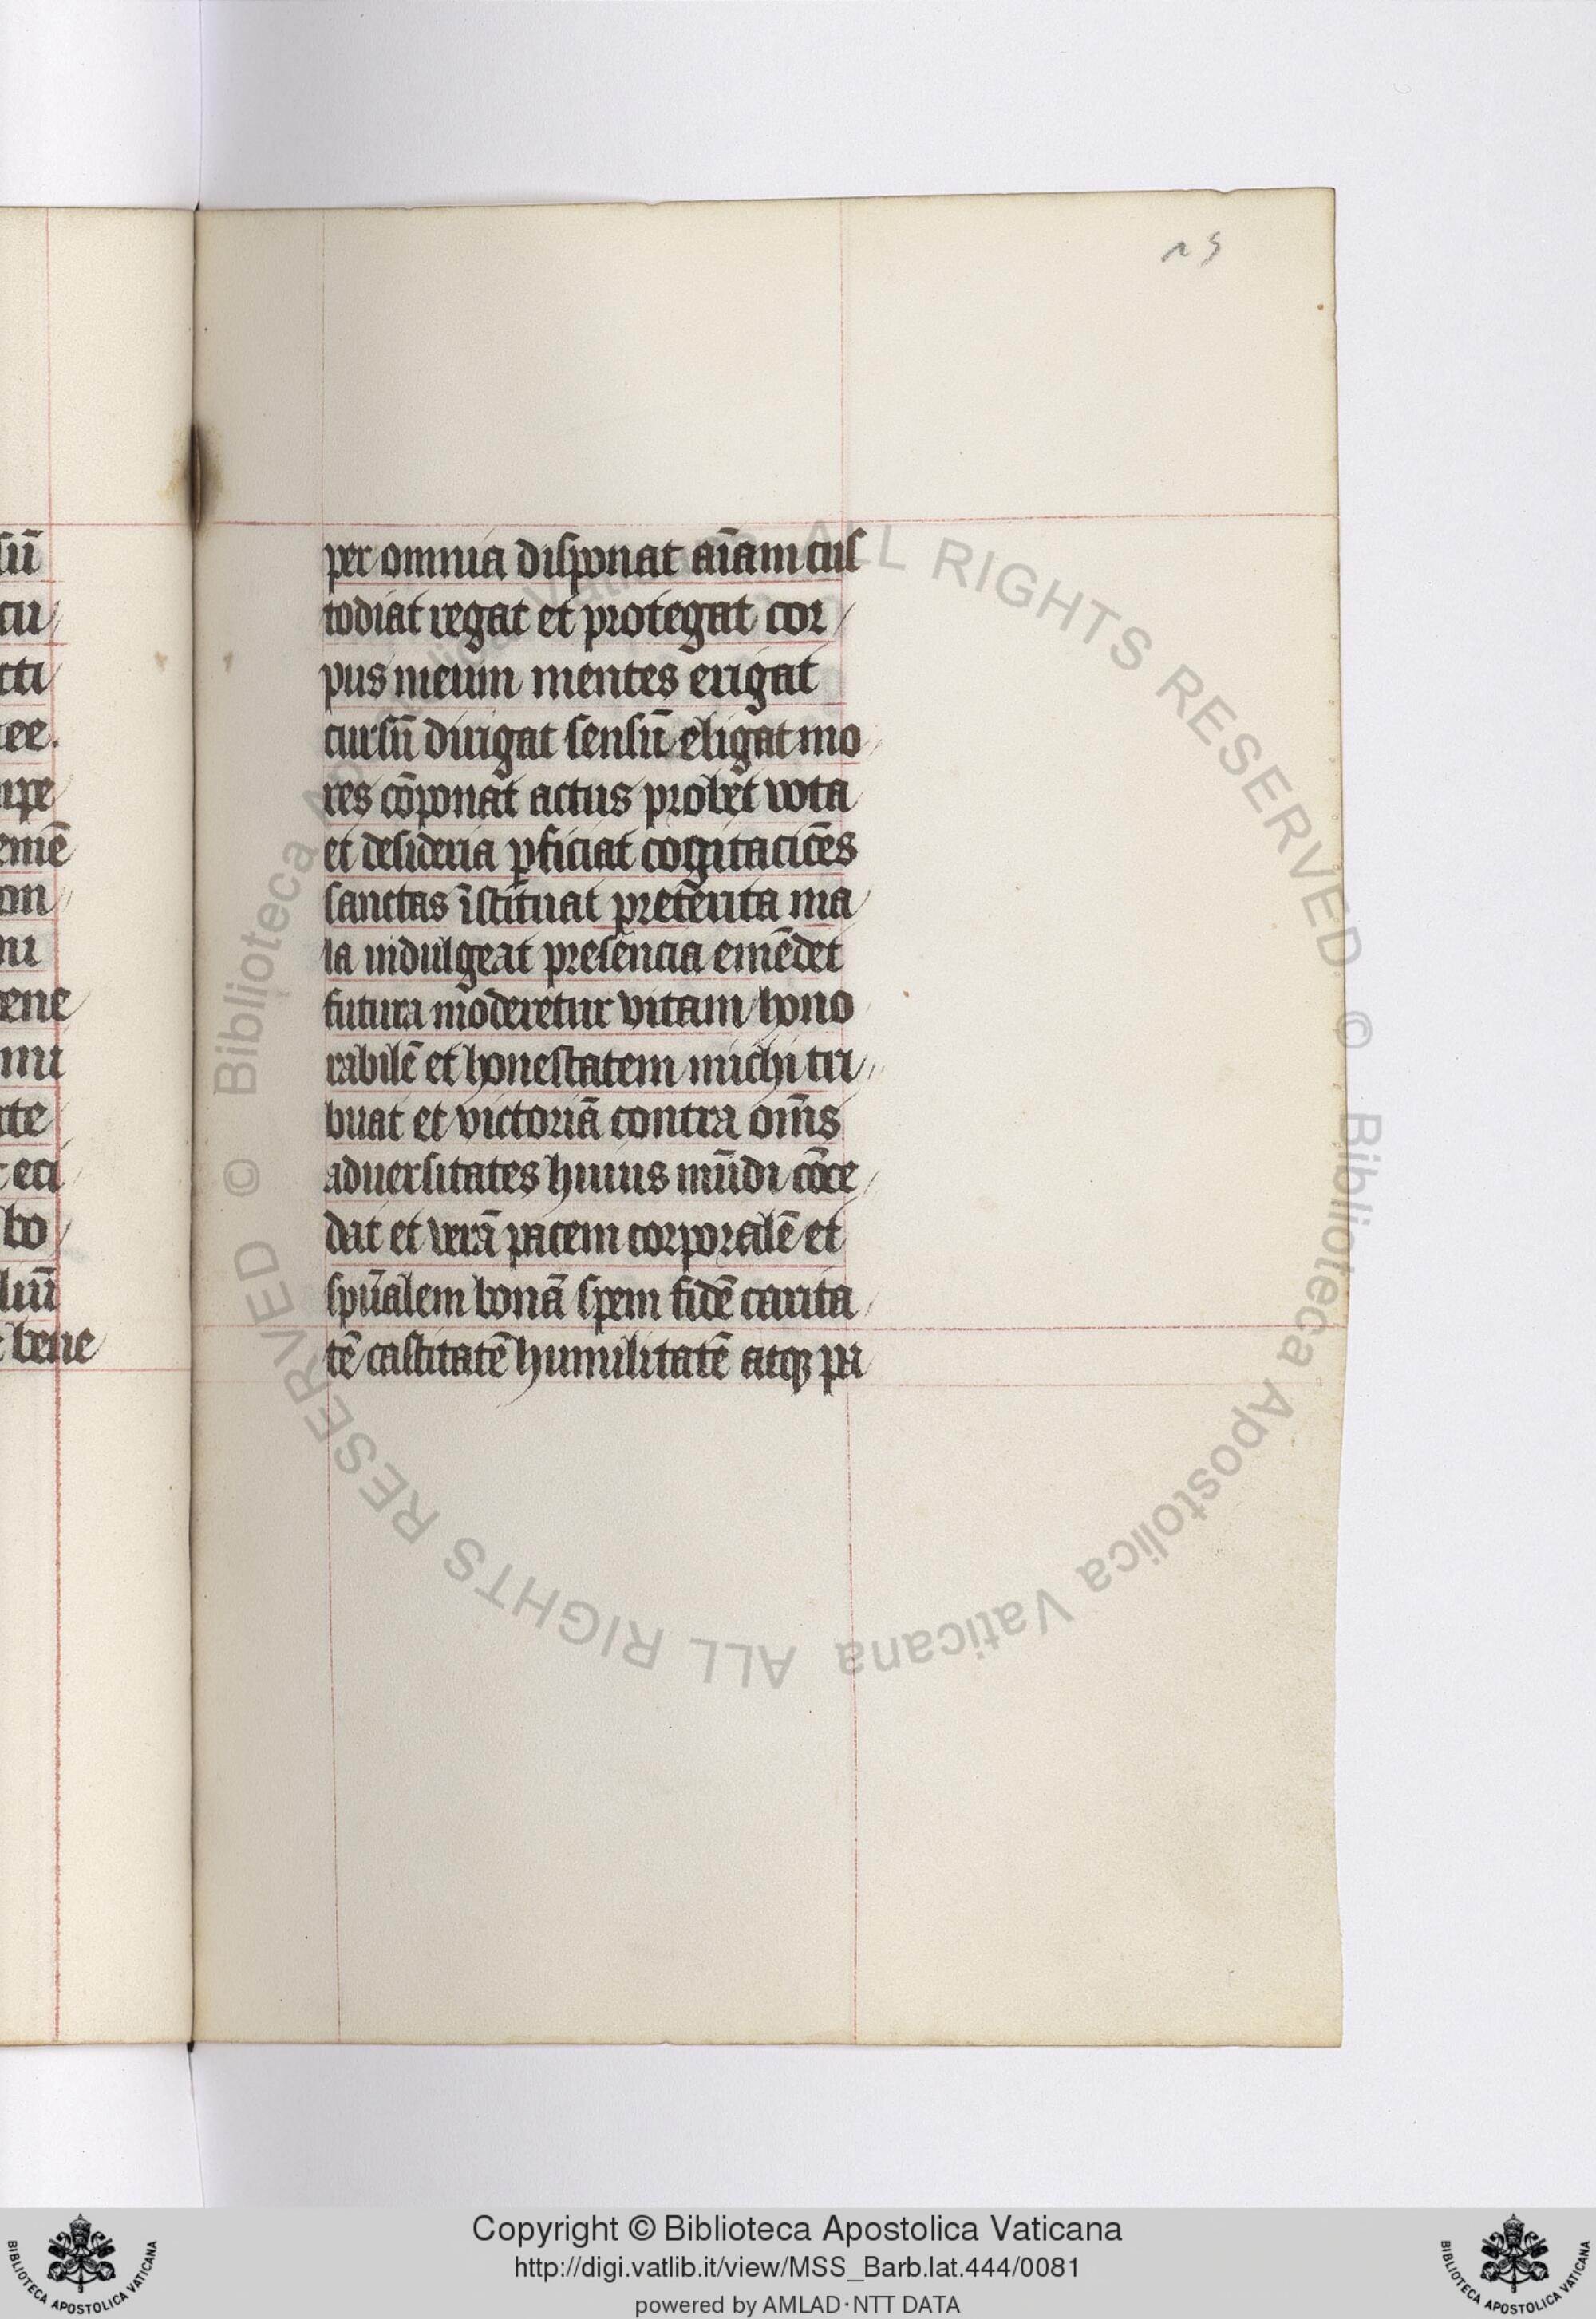 sū
cu
cti
tee.
mpe
emē
on
ni
bene
mi
rte
t eci
bo
liū
t bene
25
per omnia disponat aīam cus
todiat regat et protegat cor
pus meum mentes erigat
cursū dirigat sensū eligat mo
res cōponat actus probet vota
et desideria ꝑficiat cogitaciōēs
sanctas īstituat preterita ma
la indulgeat presencia emēdet
futura moderetur vitam hono
rabilē et honestatem michi tri
buat et victoriā contra om̄s
aduersitates huius mūdi cōce
dat et verā pacem corporalē et
spūalem bonā spem fidē carita
tē castitatē humilitatē atqꝫ pa
© Biblioteca Apostolica Vaticana ALL RIGHTS RESERVED © Biblioteca Apostolica Vaticana ALL RIGHTS RESERVED
Copyright © Biblioteca Apostolica Vaticana
http://digi.vatlib.it/view/MSS_Barb.lat.444/0081
powered by AMLAD·NTT DATA
BIBLIOTECA APOSTOLICA VATICANA
BIBLIOTECA APOSTOLICA VATICANA